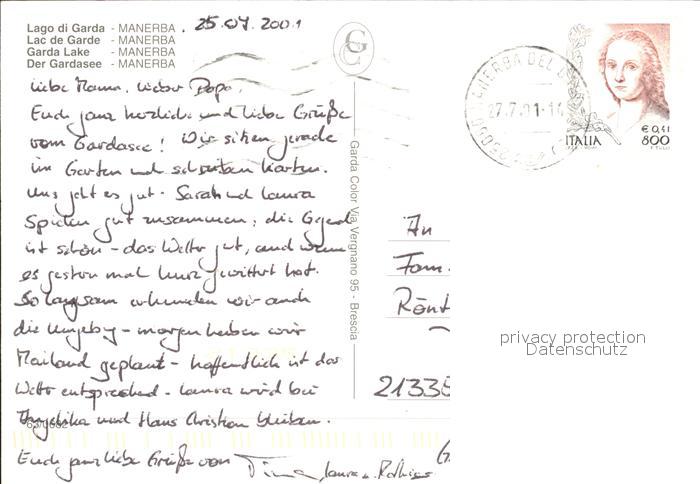 Lago di Garda - MANERBA
Lac de Garde - MANERBA
Garda Lake - MANERBA
Der Gardasee - MANERBA
25.07.2001
Liebe Mama, lieber Papa,
Euch ganz herzliche und liebe Grüße
vom Gardasee! Wir sitzen gerade
im Garten und schreiben Karten.
Uns geht es gut. Sarah und Laura
spielen gut zusammen, die Gegend
ist schön - das Wetter gut, auch wenn
es gestern mal kurz gewittert hat.
So langsam erkunden wir auch
die Umgebg - morgen haben wir
Mailand geplant - hoffentlich ist das
Wetter entsprechend. Laura wird bei
Angelika und Hans Christian bleiben.
Euch ganz liebe Grüße von
Tina, Laura u. Mathias
Garda Color Via Vergnano 95 - Brescia
MANERBA DEL
27.7.01-14
ITALIA
€ 0,41
800
An
Fam.
Rönt
21335
privacy protection
Datenschutz